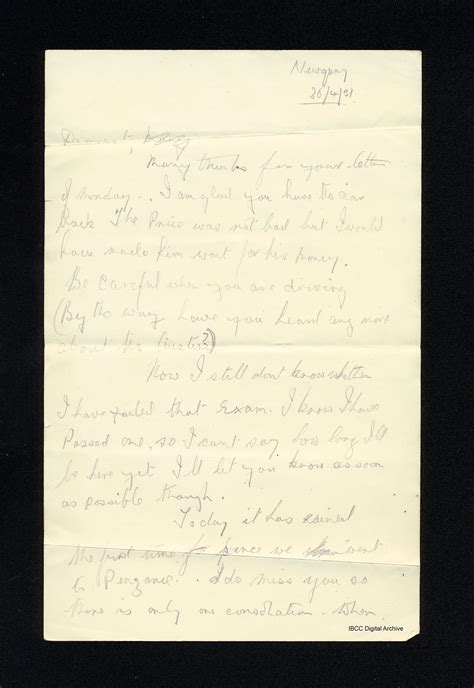 Newquay
30/4/21
Dearest,
Many thanks for your letter
of Monday.. I am glad you have the car
back The Price was not bad but I would
have made him wait for his money.
Be careful when you are driving
(By the way have you heard any more
about the ?)
Now I still dont know whether
I have failed that Exam. I know I have
Passed one, so I cant say how long I'll
be here yet I'll let you know as soon
as possible though.
Today it has rained
the first time since we went
to Penzance.. I do miss you so
there is only one consolation. When
IBCC Digital Archive